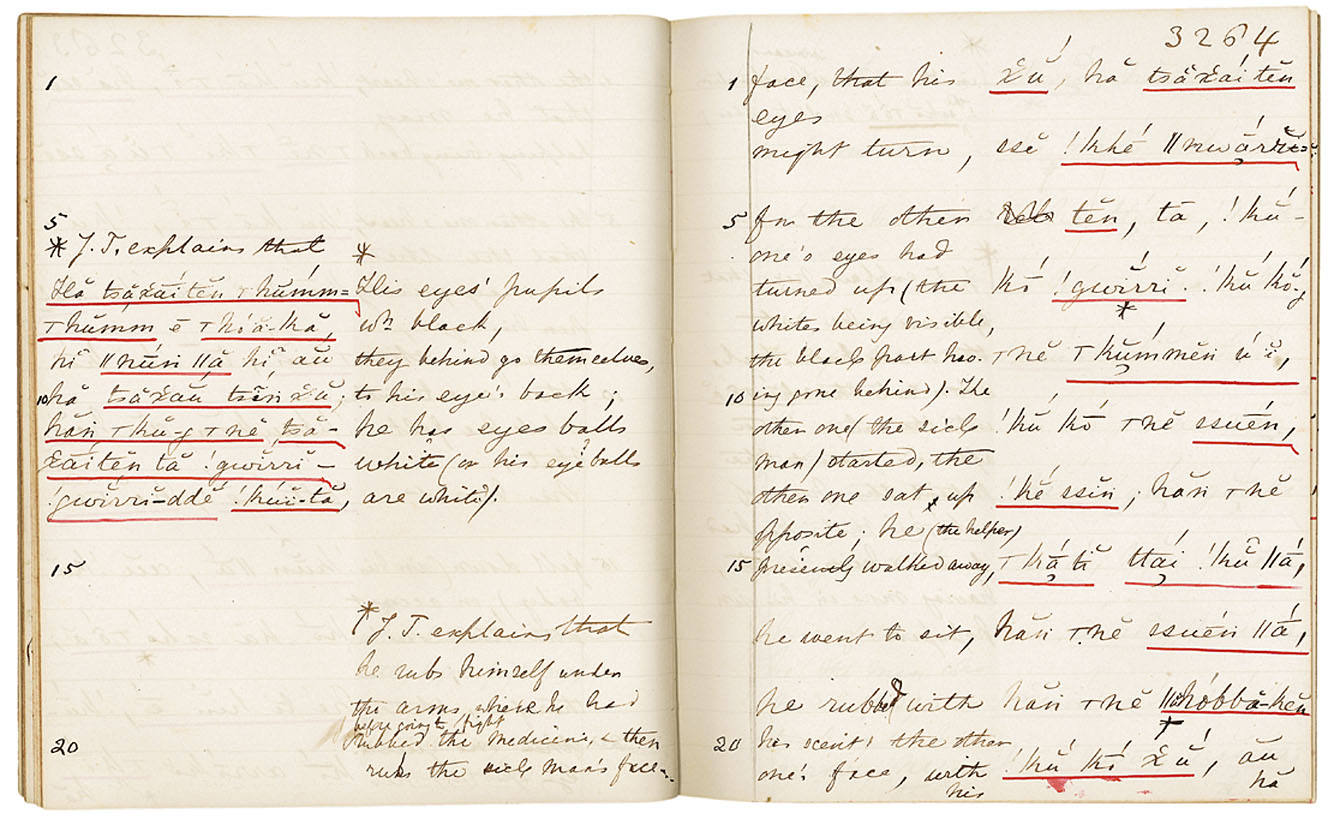 1
5
* J. T. explains that
Hă tsăxáitĕn ꞇhŭmm=
ꞇhŭmm ē ꞇhóă-kă,
hĭ ǁnŭn ǁă hĭ, aŭ
10 hă tsăxaŭ tsĭnxŭ;
hăn ꞇhŭ-g ꞇnĕ tsă-
xăitĕn tă !gwĭrrĭ-
!gwĭrrĭ-ddĕ !kŭĭ-tă,
15
20
*
His eyes' pupils
wh black,
they behind go themselves,
to his eye's back;
he has eyes balls
white (or his eye balls
are white?).
* J. T. explains that
he rubs himself under
the arms where he had
before going to fight
rubbed the medicine, & then
rubs the sick man's face
3264
1 face, that his xŭ, hă tsăxáitĕn
eyes
might turn, ssĕ !khé ǁnwárrĭ=
5 for the other tĕn, tă, !kŭ-
one's eyes had
turned up (the kó !gwĭrrĭ. !kŭ kŏ-g
*
whites being visible,
the black part hav- ꞇnĕ ꞇkŭmmĕn ŭĭ,
10 ing gone behind). The
other one (the sick !kŭ kŏ ꞇnĕ ssuén,
man) started, the
other one sat up !ké ssĭn; hăn ꞇnĕ
opposite; he (the helper)
15 presently walked away, ꞇkátĭ ttái !kŭ ǁá,
he went to sit, hăn ꞇnĕ ssuén ǁá,
he rubbed with hăn ꞇnĕ ǁhóbbă-kĕn
*
20 his scent the other
one's face, with !kŭ kó xŭ, aŭ
his hă